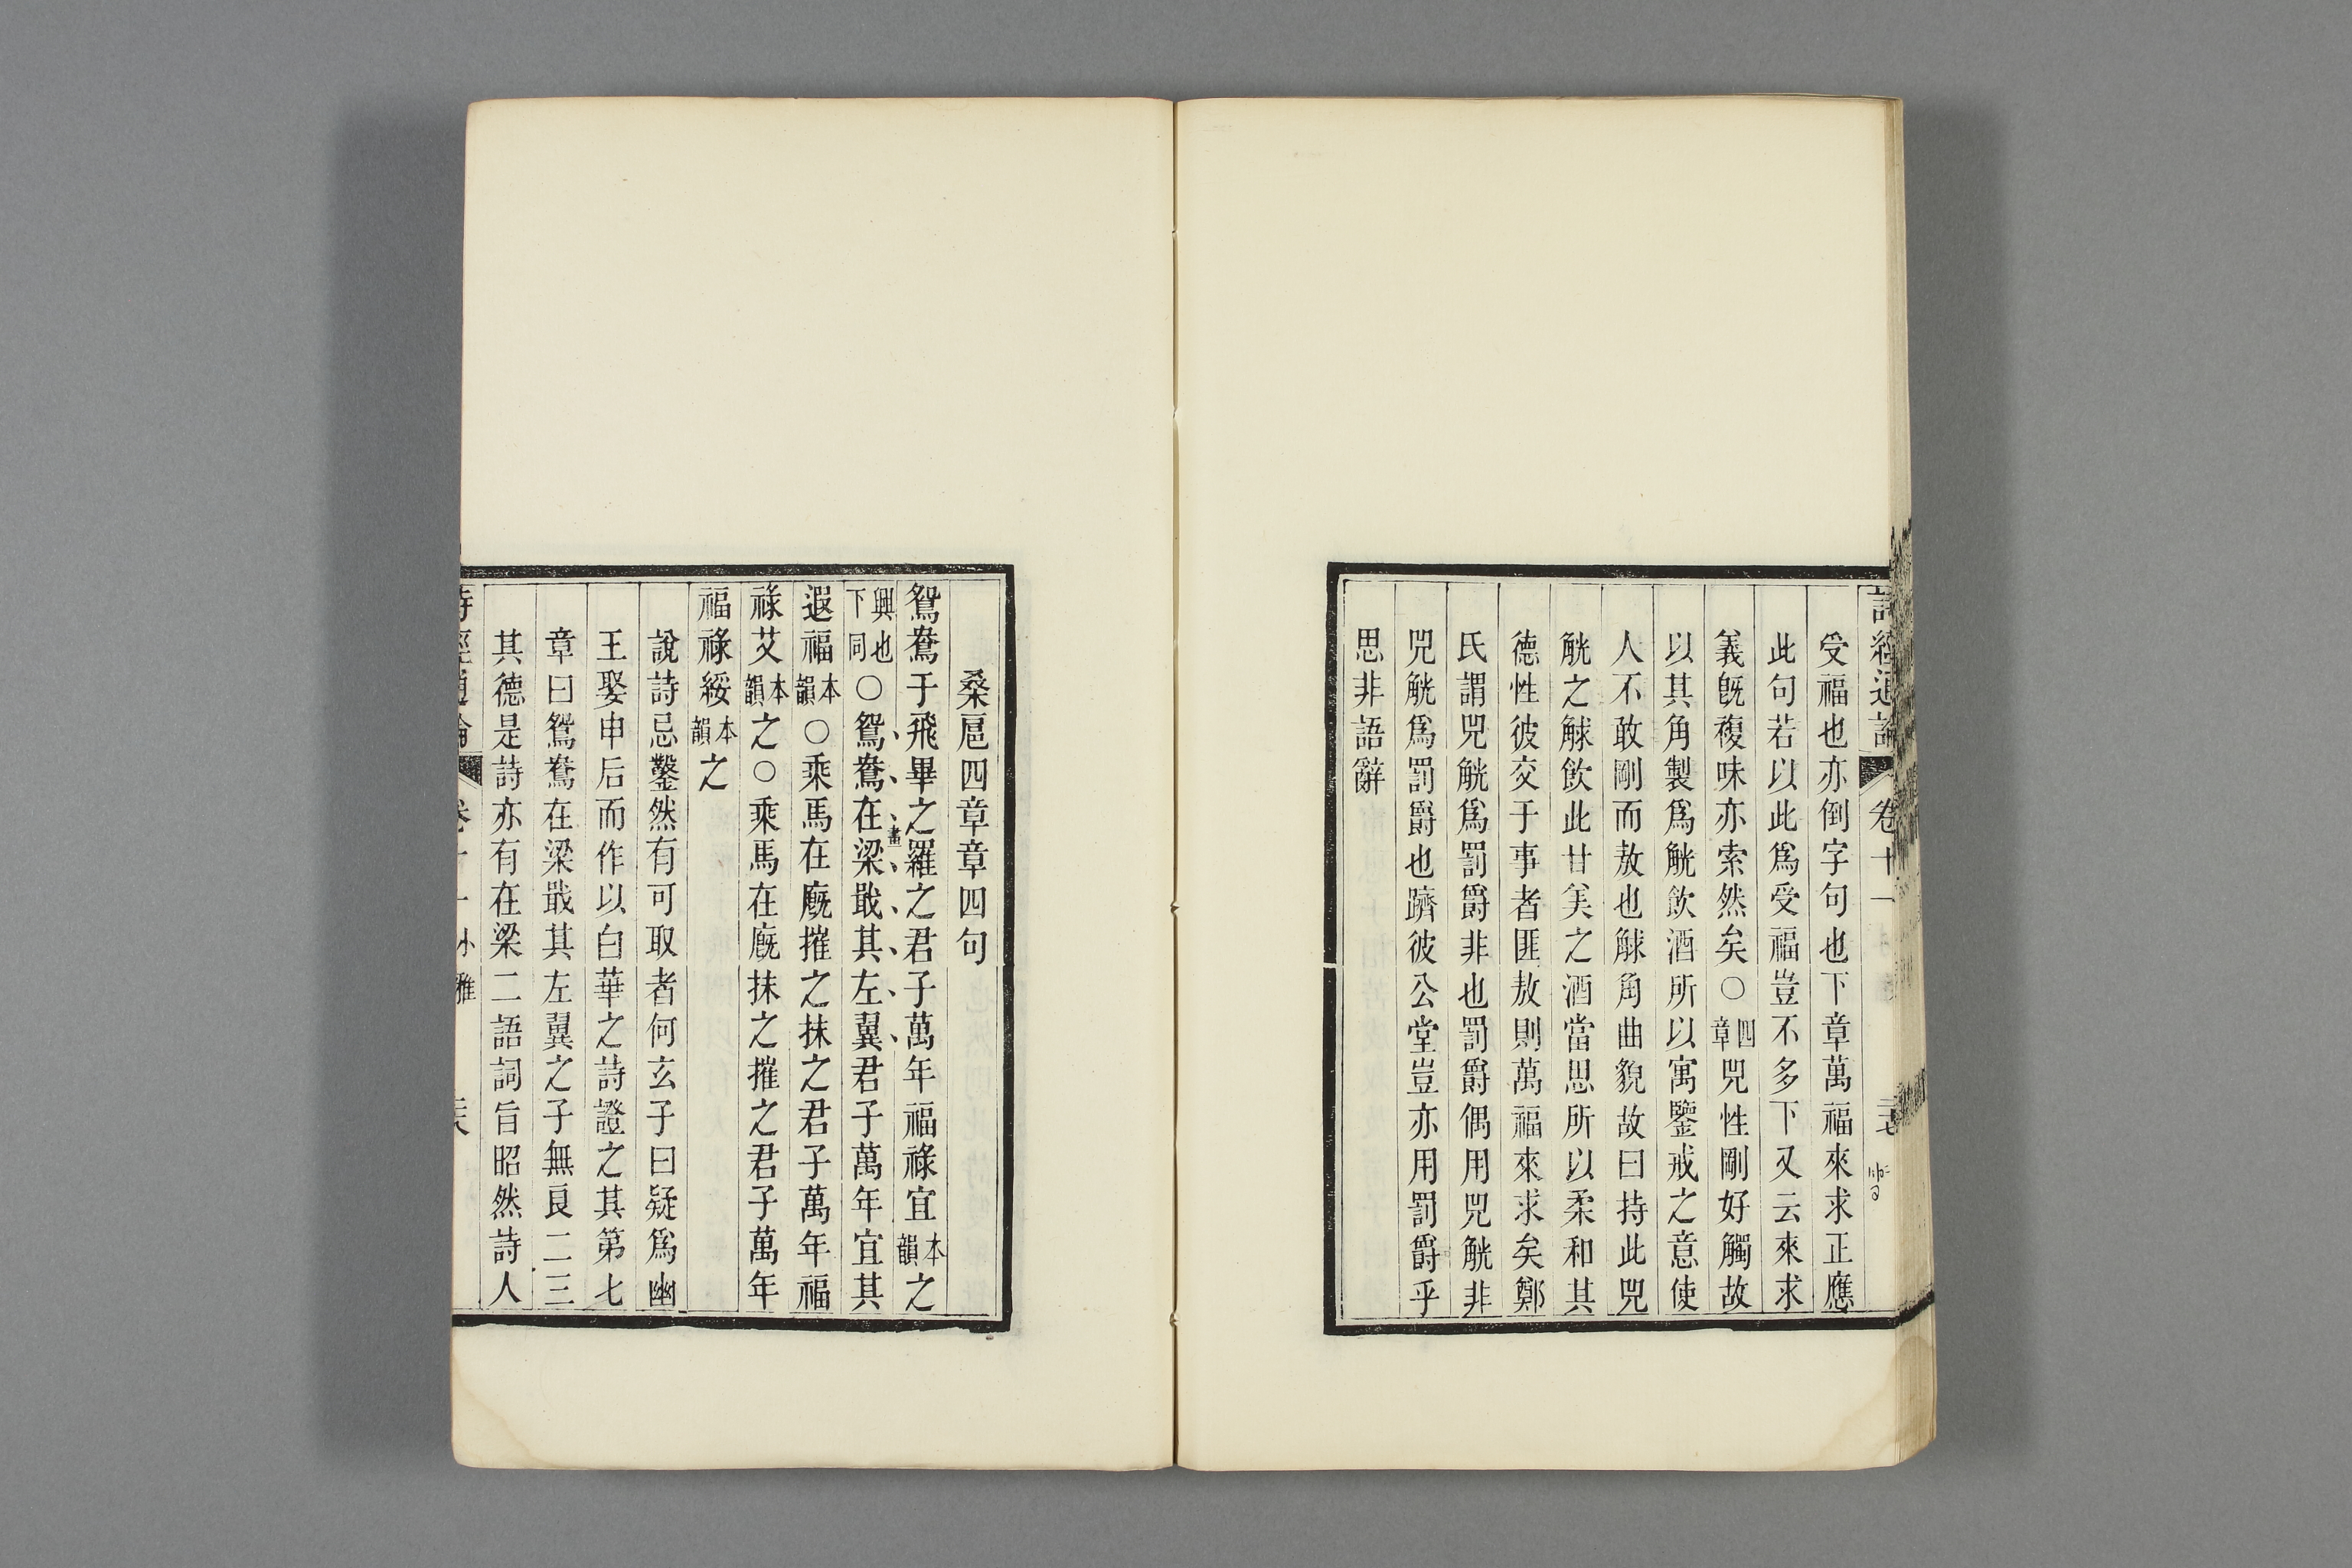 詩經通論 卷十一
受福也亦倒字句也下章萬福來求正應
此句若以此爲受福豈不多下又云來求
義旣複味亦索然矣○四章兕性剛好觸故
以其角製爲觥飮酒所以寓鑒戒之意使
人不敢剛而敖也觩角曲貌故曰持此兕
觥之觩飮此甘美之酒當思所以柔和其
德性彼交于事者匪敖則萬福來求矣鄭
氏謂兕觥爲罰爵非也罰爵偶用兕觥非
兕觥爲罰爵也躋彼公堂豈亦用罰爵乎
思非語辭
桑扈四章章四句
鴛鴦于飛畢之羅之君子萬年福祿宜本韻之
興也下同○鴛鴦在梁戢其左翼君子萬年宜其
畫
遐福本韻○乘馬在廐摧之抹之君子萬年福
祿艾本韻之○乘馬在廐抹之摧之君子萬年
福祿綏本韻之
說詩忌鑿然有可取者何玄子曰疑爲幽
王娶申后而作以白華之詩證之其第七
章曰鴛鴦在梁戢其左翼之子無良二三
其德是詩亦有在梁二語詞旨昭然詩人
詩經通論 卷十一 小雅